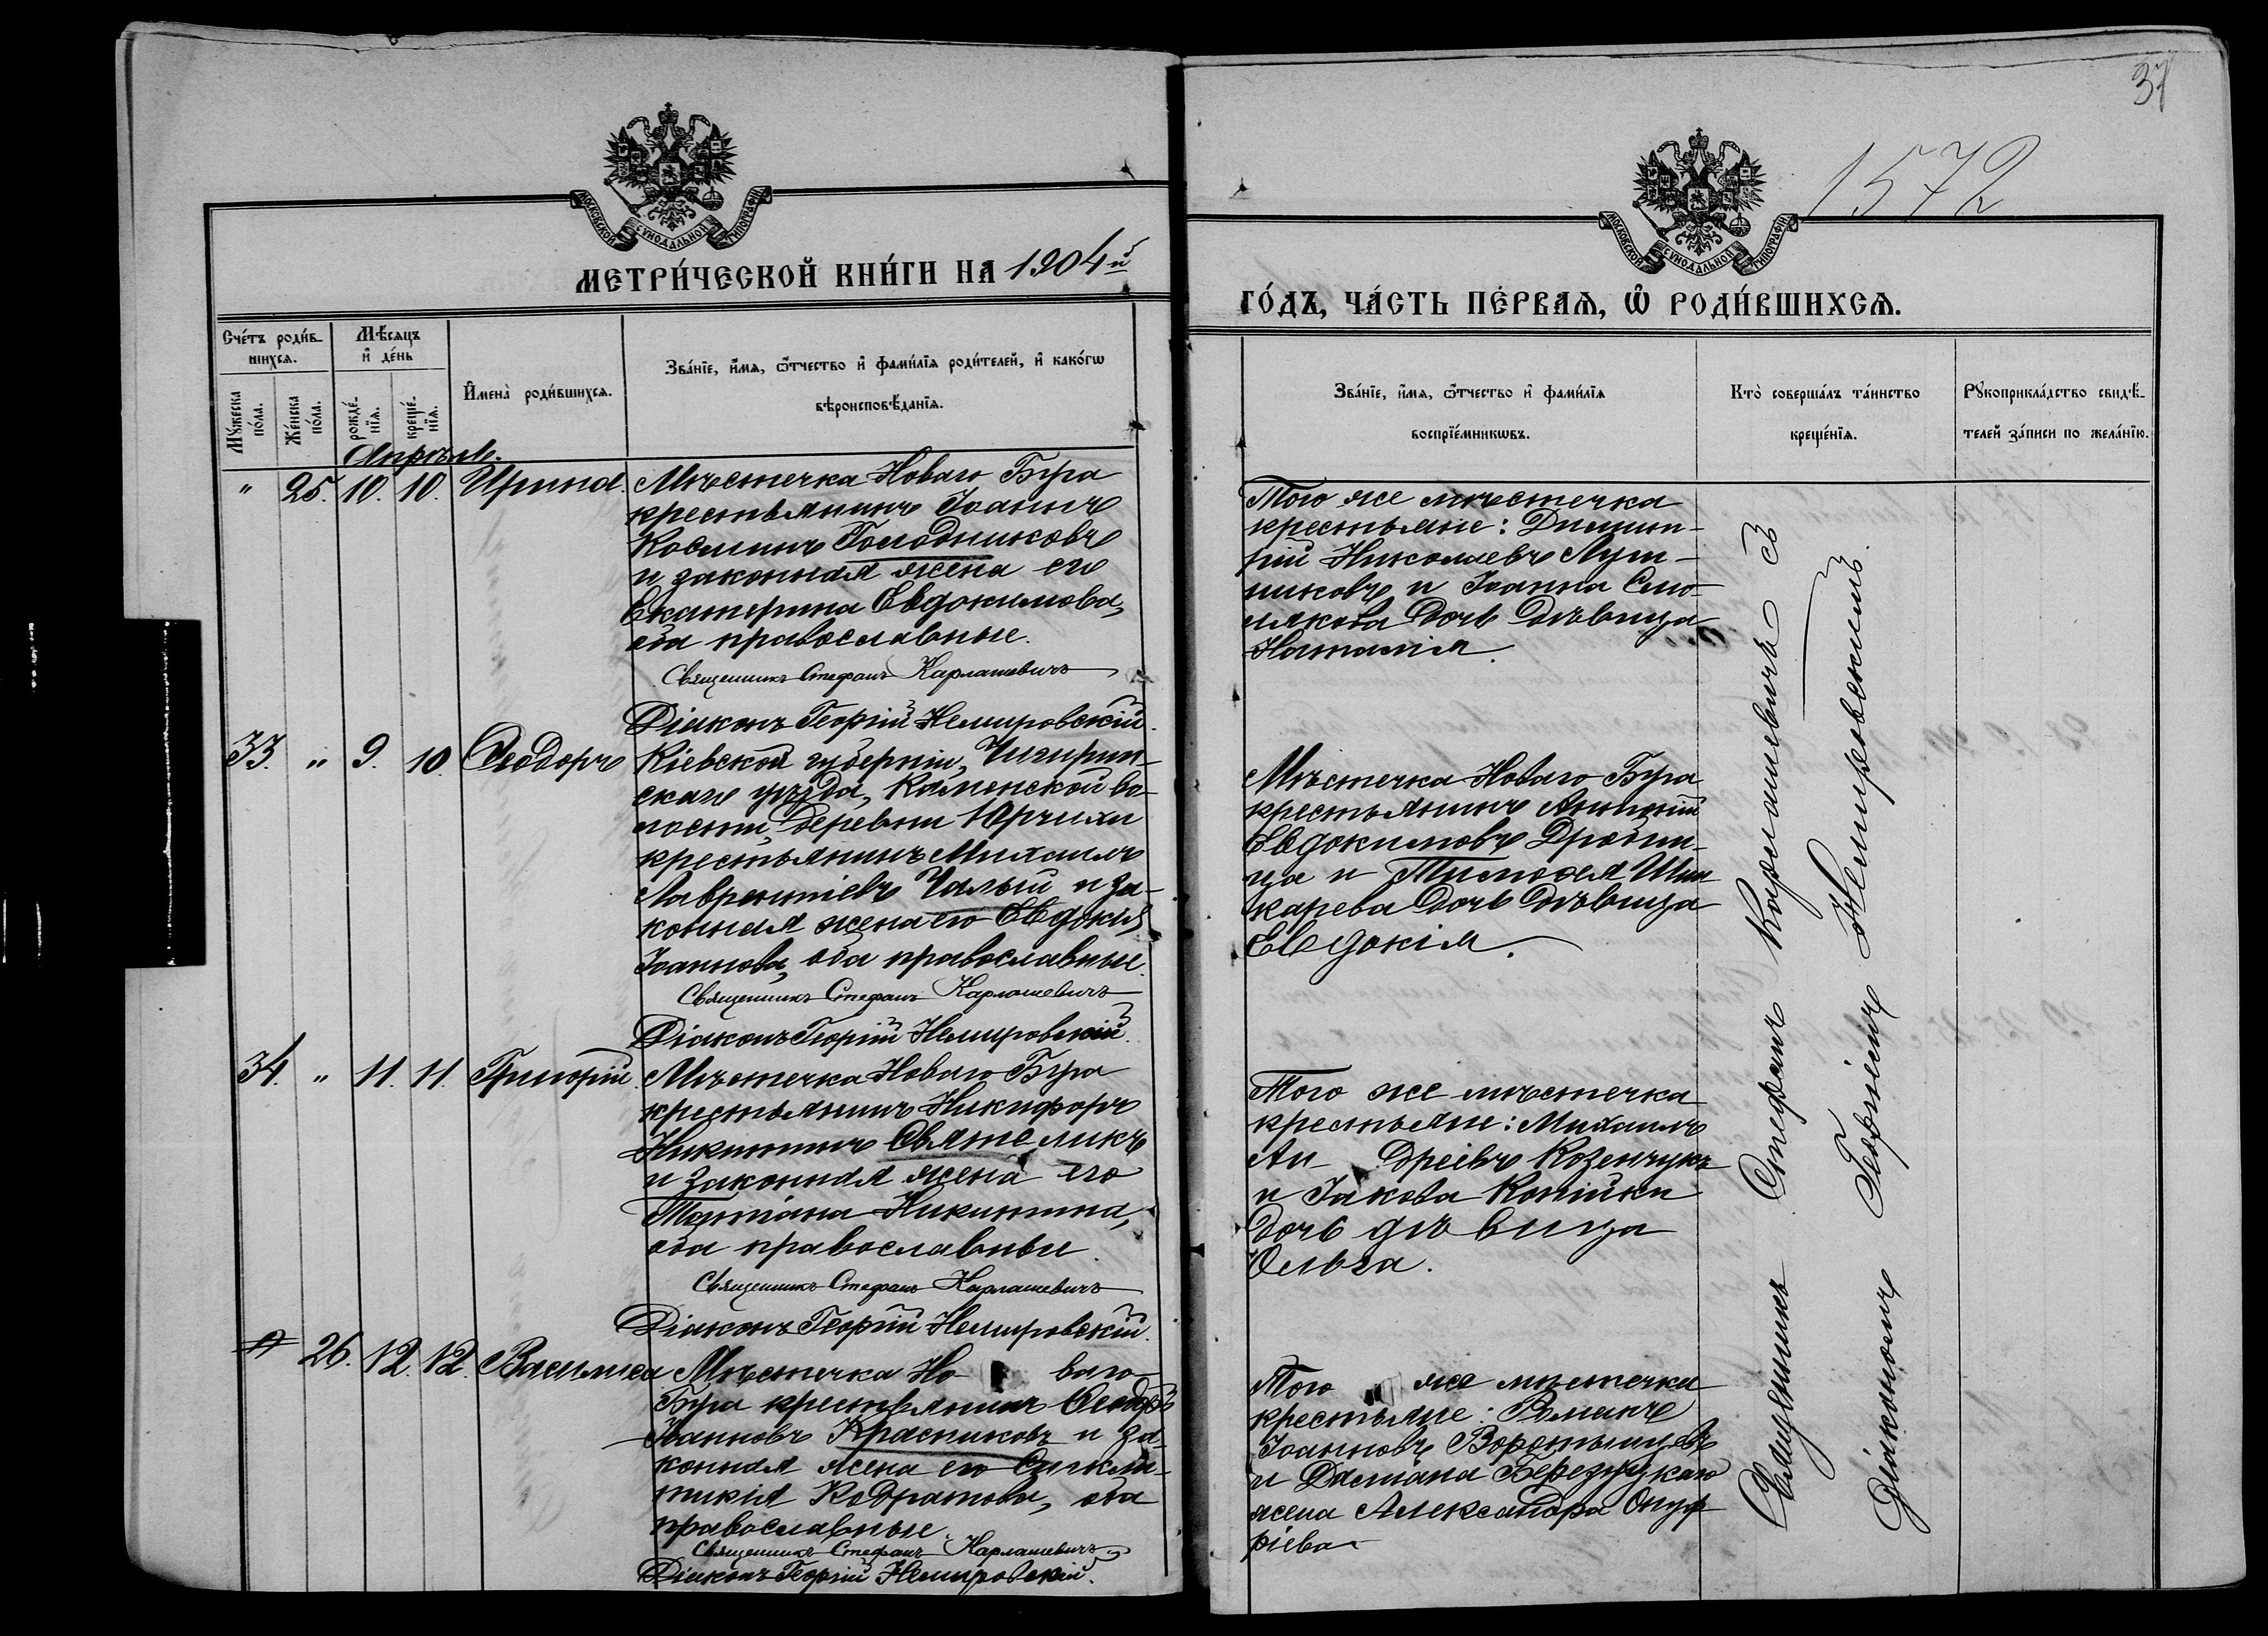 37
1572
МОСКОВСКОЙ СѴНОДАЛЬНОЙ ТИПОГРАФІИ
МОСКОВСКОЙ СѴНОДАЛЬНОЙ ТИПОГРАФІИ
МЕТРИ́ЧЕСКОЙ КНИ́ГИ НА 1904й
ГО́ДЪ, ЧА́СТЬ ПЕ́РВАѦ, Ѡ҆ РОДИ́ВШИХСѦ.
Сче́тъ роди́в-
шихсѧ.
Мꙋ́жеска
по́ла.
Же́нска
по́ла.
Мѣ́сѧцъ
и҆ де́нь
рожде́-
нїѧ.
креще́-
нїѧ.
И҆мена̀ роди́вшихсѧ.
Зва́нїе, и҆́мѧ, ѻ҆́тчество и҆ фами́лїѧ роди́телей, и҆ како́гѡ
вѣроисповѣ́данїѧ.
Зва́нїе, и҆́мѧ, ѻ҆́тчество и҆ фами́лїѧ
воспрїе́мникѡвъ.
Кто̀ соверша́лъ та́инство
креще́нїѧ.
Рꙋкоприкла́дство свидѣ́-
телей за́писи по жела́нїю.
Апрѣль.
" 25. 10. 10. Ирина.
Мѣстечка Новаго Буга
крестьянинъ Іоаннъ
Косминъ Голодниковъ
и законная жена его
Екатерина Евдокимова,
оба православные.
Священникъ Стефанъ Карлашевичъ
Діаконъ Георгій Немировскій.
Того же мѣстечка
крестьяне: Димит-
рій Николаевъ Луш-
никовъ и Іоанна Смо-
лякова дочь дѣвица
Наталія.
33. " 9. 10. Ѳеодоръ
Кіевской губерніи, Чигирин-
скаго уѣзда, Каменской во-
лости, деревни Юрчихи
крестьянинъ Михаилъ
Лаврентіевъ Чалый и за-
конная жена его Евдокія
Іоаннова, оба православные.
Священникъ Стефанъ Карлашевичъ
Діаконъ Георгій Немировскій.
Мѣстечка Новаго Буга
крестьянинъ Антоній
Евдокимовъ Дроби-
ца и Тимоѳея Шин
карева дочь дѣвица
Евдокія.
34. " 11. 11. Григорій.
Мѣстечка Новаго Буга
крестьянинъ Никифоръ
Никитинъ Святеликъ
и законная жена его
Татіана Никитина,
оба православные.
Священникъ Стефанъ Карлашевичъ
Діаконъ Георгій Немировскій.
Того же мѣстечка
крестьяне: Михаилъ
Ан- дреевъ Козенчукъ
и Іакова Копійки
дочь дѣвица
Ольга.
" 26. 12. 12. Василиса
Мѣстечка Но- ваго
Буга крестьянинъ Ѳеодоръ
Іоанновъ Красниковъ и за-
конная жена его Синкли-
тикія Кодратова, оба
православные.
Священникъ Стефанъ Карлашевичъ
Діаконъ Георгій Немировскій.
Того же мѣстечка
крестьяне: Романъ
Іоанновъ Воротынцевъ
и Даміана Березуцкаго
жена Александра Онуф
ріева
Священникъ Стефанъ Карлашевичъ съ
Діакономъ Георгіемъ Немировскимъ.